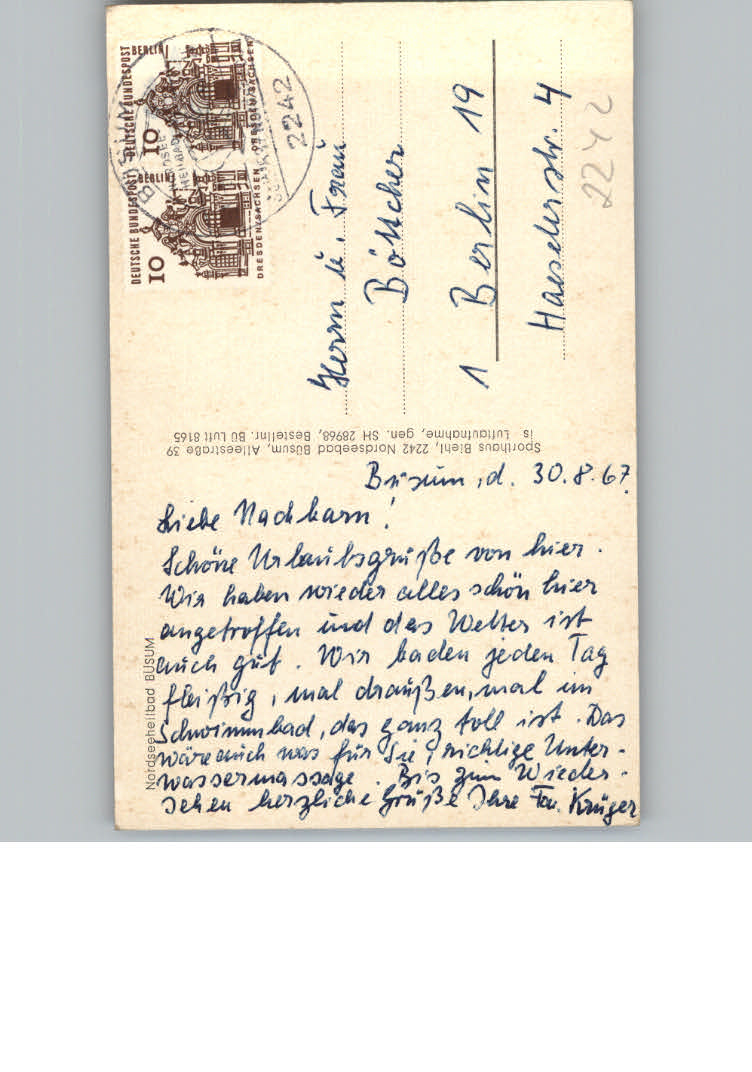 DEUTSCHE BUNDESPOST BERLIN
10
DRESDEN/SACHSEN
DEUTSCHE BUNDESPOST BERLIN
10
DRESDEN/SACHSEN
BÜSUM
NORDSEE
HEILBAD
2242
Herrn u. Frau
Böttcher
1 Berlin 19
Haeselerstr. 4
2242
Sporthaus Biehl, 2242 Nordseebad Büsum, Alleestraße 39
is Luftaufnahme, gen. SH 28968, Bestellnr. Bü Luft 8165
Nordseeheilbad BÜSUM
Büsum, d. 30.8.67.
Liebe Nachbarn!
Schöne Urlaubsgrüße von hier.
Wir haben wieder alles schön hier
angetroffen und das Wetter ist
auch gut. Wir baden jeden Tag
fleißig, mal draußen, mal im
Schwimmbad, das ganz toll ist. Das
wäre auch was für Sie, richtige Unter-
wassermassage. Bis zum Wieder-
sehen herzliche Grüße Ihre Fam. Krüger